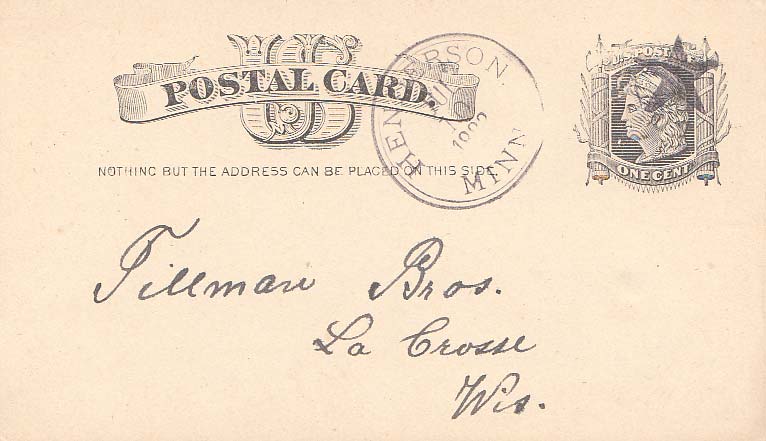 US
POSTAL CARD.
NOTHING BUT THE ADDRESS CAN BE PLACED ON THIS SIDE.
HENDERSON.
MINN
U.S. POSTAGE
ONE CENT
Tillman Bros.
La Crosse
Wis.